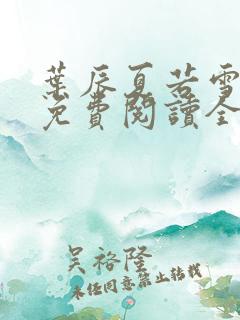 葉辰夏若雪
免費閱讀全
吳裕隆
未經同意禁止轉載